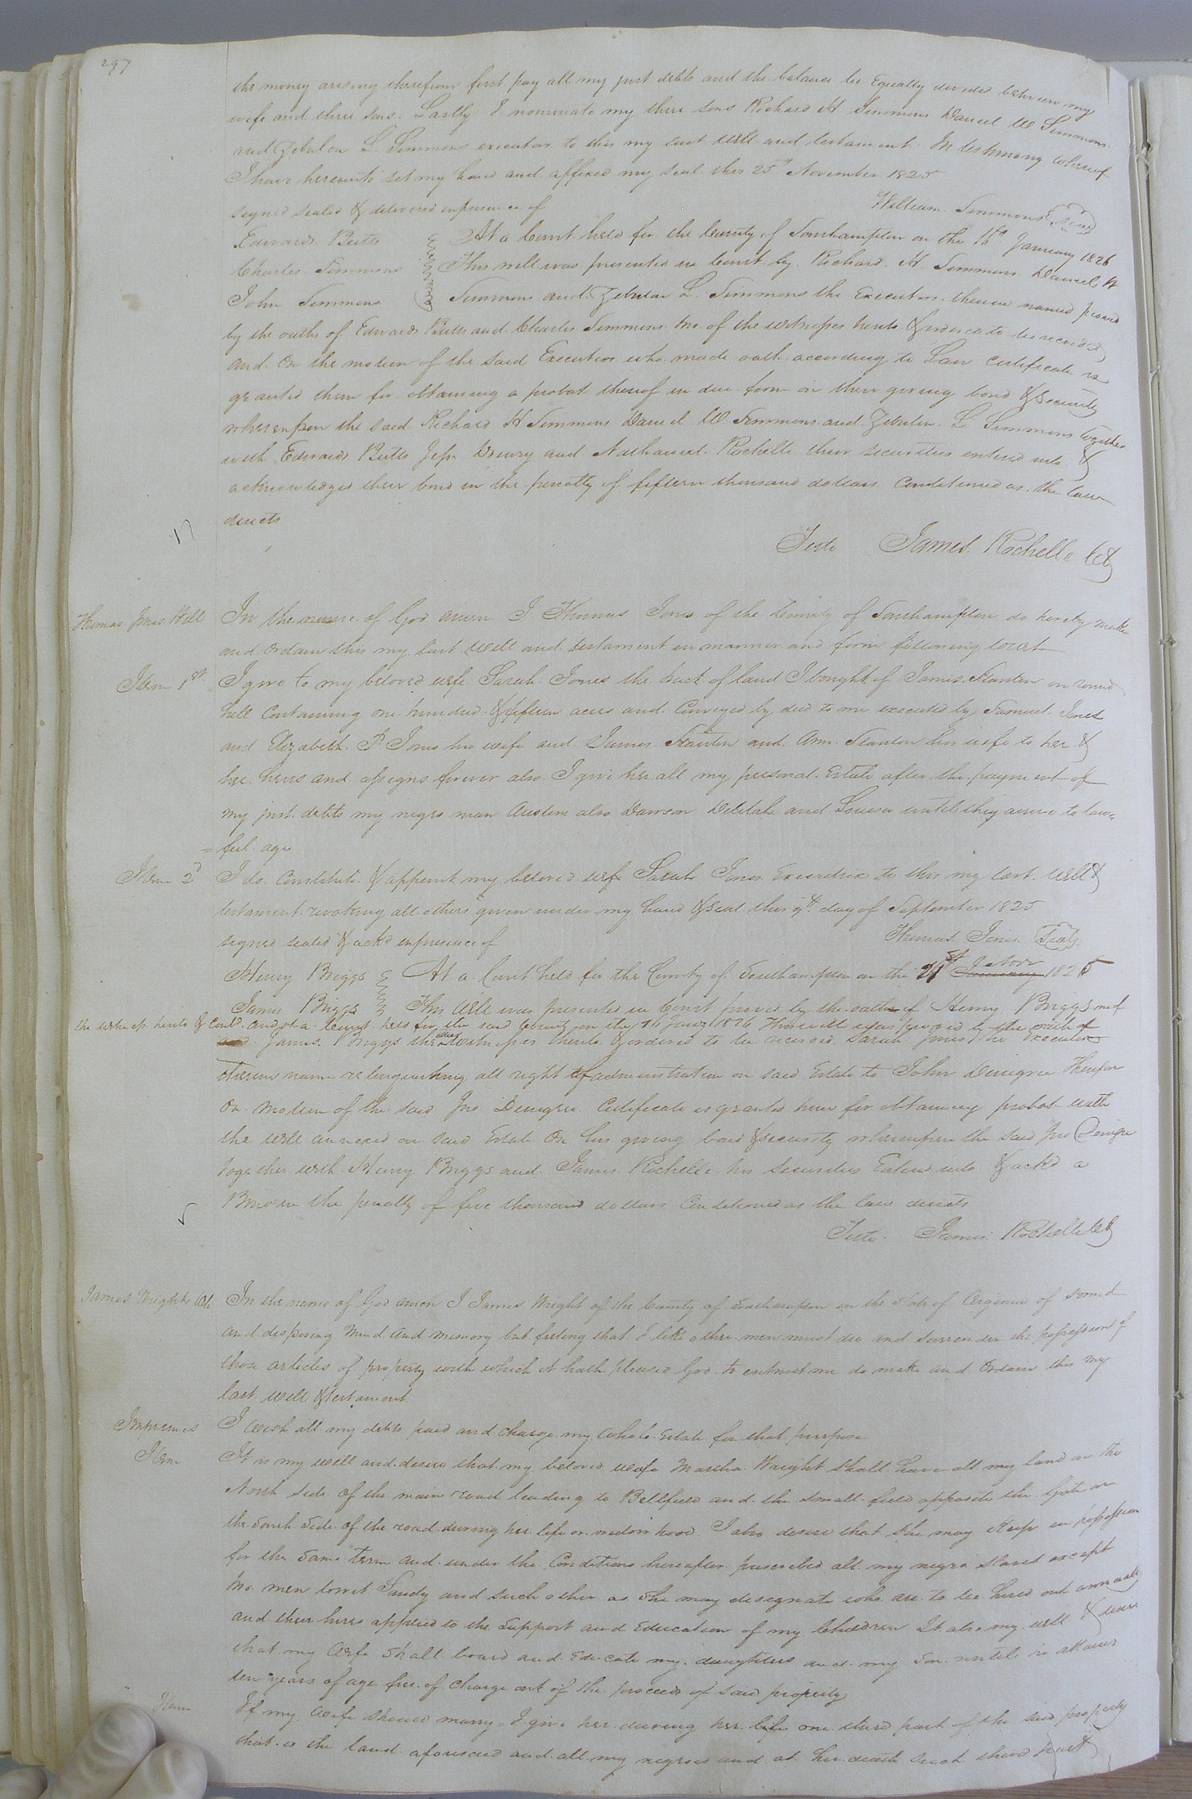 297
the money arising therefrom first pay all my just debts and the balance be Equally divided between my
wife and three sons. Lastly I nominate my three sons Richard H Simmons Daniel W Simmons
and Zebulon L. Simmons executors to this my last Will and testament. In testimony whereof
I have hereunto set my hand and affixed my seal this 25th November 1825
signed sealed & delivered in presence of
William Simmons (Seal)
Edwards Butts
Charles Simmons
John Simmons
At a Court held for the County of Southampton on the 16th January 1826
This will was presented in Court by Richard H Simmons Daniel W
Simmons and Zebulon L. Simmons the Executors therein named proved
by the oaths of Edwards Butts and Charles Simmons two of the witnesses hereto & ordered to be recorded
and on the motion of the said Executors who made oath according to Law certificate is
granted them for obtaining a probat thereof in due form on their giving bond & security
whereupon the said Richard H Simmons Daniel W Simmons and Zebulon L Simmons together
with Edwards Butts Jesse Drewry and Nathaniel Rochelle their securities entered into &
acknowledged their bond in the penalty of fifteen thousand dollars Conditioned as the law
directs
Teste James Rochelle Clk
Thomas Jones Will
In the name of God amen I Thomas Jones of the County of Southampton do hereby make
and ordain this my last Will and testament in manner and form following to wit
Item 1st
I give to my beloved wife Sarah Jones the tract of land I bought of James Stanton on round
hill Containing one hundred & fifteen acres and Conveyed by deed to me executed by Samuel Jones
and Elizabeth P Jones his wife and James Stanton and Ann Stanton his wife to her &
her heirs and assigns forever also I give her all my personal Estate after the payment of
my just debts my negro man Austin also Dawson Delilah and Louisa until they arrive to law=
=ful age
Item 2d
I do Constitute & appoint my beloved wife Sarah Jones Executrix to this my last will &
testament revoking all others given under my hand & seal this 9th day of September 1825
signed sealed & ackd in presence of
Thomas Jones (Seal)
Henry Briggs
James Briggs
At a Court held for the County of Southampton on the 21st October January 1825
This Will was presented in Court proved by the oath of Henry Briggs one of
the witnesses hereto & Contd. and at a Court held for the said County on the 16 Jany 1826 This will was proved by the oath of
James Briggs the other witness hereto & ordered to be recorded Sarah Jones the Executrix
therein name relinquishing all right of administration on said Estate to John Denegre Therefore
On motion of the said Jno Denegre Certificate is granted him for obtaining probat with
the will annexed on said Estate On his giving bond & security whereupon the said Jno Denegre
together with Henry Briggs and James Rochelle his securities Entered into & ackd a
Bond in the penalty of five thousand dollars Conditioned as the law directs
Teste James Rochelle Clk
James Wrights Will
In the name of God amen I James Wright of the County of Southampton in the State of Virginia of sound
and disposing Mind and memory but feeling that I like other men must die and surrender the possession of
those articles of property with which it hath pleased God to entrust me do make and Ordain this my
last will & testament
Imprimis
I wish all my debts paid and charge my whole Estate for that purpose
Item
It is my will and desire that my beloved wife Martha Wright shall have all my land on the
North side of the main road leading to Bellfield and the small field opposite the Gate on
the South Side of the road during her life or widowhood I also desire that she may keep in possession
for the same term and under the Conditions hereafter prescribed all my negro slaves except
two men towit Sandy and such other as she may designate who are to be hired out annually
and their hires applied to the support and Education of my Children It also my will & desire
that my Wife shall board and Educate my daughters and my son until he attains
ten years of age free of charge out of the proceeds of said property
Item
If my Wife should marry I give her during her life one third part of the said property
that is the land aforesaid and all my negroes and at her death such third part